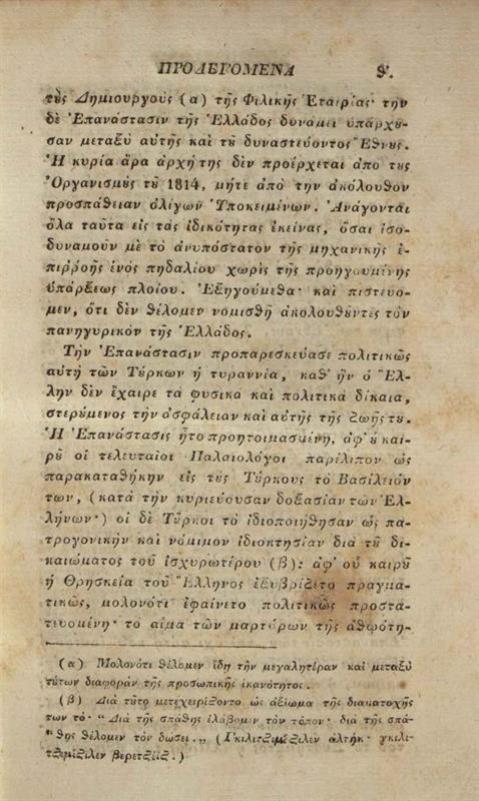 ΠΡΟΛΕΓΟΜΕΝΑ θ'.
τȣ̀ς Δημιουργοὺς (α) τῆς Φιλικῆς Ἑταιρίας· τὴν
δὲ Ἐπανάστασιν τῆς Ἑλλάδος δυνάμει ὑπάρχȣ-
σαν μεταξὺ αὐτῆς καὶ τȣ͂ δυναστεύοντος Ἔθνȣς.
Ἡ κυρία ἄρα ἀρχή της δὲν προέρχεται ἀπὸ τȣς
Ὀργανισμȣ̀ς τȣ͂ 1814, μήτε ἀπὸ τὴν ἀκόλουθον
προσπάθειαν ὀλίγων Ὑποκειμένων. Ἀνάγονται
ὅλα ταῦτα εἰς τὰς ἰδικότητας ἐκείνας, ὅσαι ἰσο-
δυναμοῦν μὲ τὸ ἀνυπόστατον τῆς μηχανικῆς ἐ-
πιῤῥοῆς ἑνὸς πηδαλίου χωρὶς τῆς προηγουμένης
ὑπάρξεως πλοίου. Ἐξηγούμεθα· καὶ πιστεύο-
μεν, ὅτι δὲν θέλομεν νομισθῆ ἀκολουθȣ͂ντες τὸν
πανηγυρικὸν τῆς Ἑλλάδος.
Τὴν Ἐπανάστασιν προπαρεσκεύασε πολιτικῶς
αὐτὴ τῶν Τύρκων ἡ τυραννία, καθ' ἣν ὁ Ἕλ-
λην δὲν ἔχαιρε τὰ φυσικὰ καὶ πολιτικὰ δίκαια,
στερȣμενος τὴν ἀσφάλειαν καὶ αὐτῆς τῆς ζωῆς τȣ.
Ἡ Ἐπανάστασις ἦτο προητοιμασμένη, ἀφ' ȣ̔͂ και-
ρȣ͂ οἱ τελευταῖοι Παλαιολόγοι παρέλιπον ὡς
παρακαταθήκην εἰς τȣ̀ς Τύρκους τὸ Βασίλειόν
των, (κατὰ τὴν κυριεύουσαν δοξασίαν τῶν Ἑλ-
λήνων·) οἱ δὲ Τȣ͂ρκοι τὸ ἰδιοποιήθησαν ὡς πα-
τρογονικὴν καὶ νόμιμον ἰδιοκτησίαν διὰ τȣ͂ δι-
καιώματος τοῦ ἰσχυρωτέρου (β): ἀφ' οὗ καιρȣ͂
ἡ Θρησκεία τοῦ Ἕλληνος ἐξυβρίζετο πραγμα-
τικῶς, μολονότι ἐφαίνετο πολιτικῶς προστα-
τευομένη· τὸ αἷμα τῶν μαρτύρων τῆς ἀθωότη-
(α) Μολονότι θέλομεν ἴδῃ τὴν μεγαλητέραν καὶ μεταξὺ
τȣ́των διαφορὰν τῆς προσωπικῆς ἱκανότητος.
(β) Διὰ τȣ͂το μετεχειρίζοντο ὡς ἀξίωμα τῆς διακατοχῆς
των τό· “Διὰ τῆς σπάθης ἐλάβομεν τὸν τόπον· διὰ τῆς σπά-
“θης θέλομεν τὸν δώσει.„ (Γκιλιτζιμίζιλεν ἀλτήκ· γκιλι-
τζιμίζιλεν βερετζίζ.)